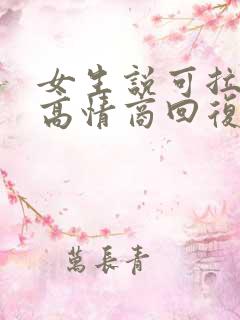 女生說可拉
高情商回復
萬長青